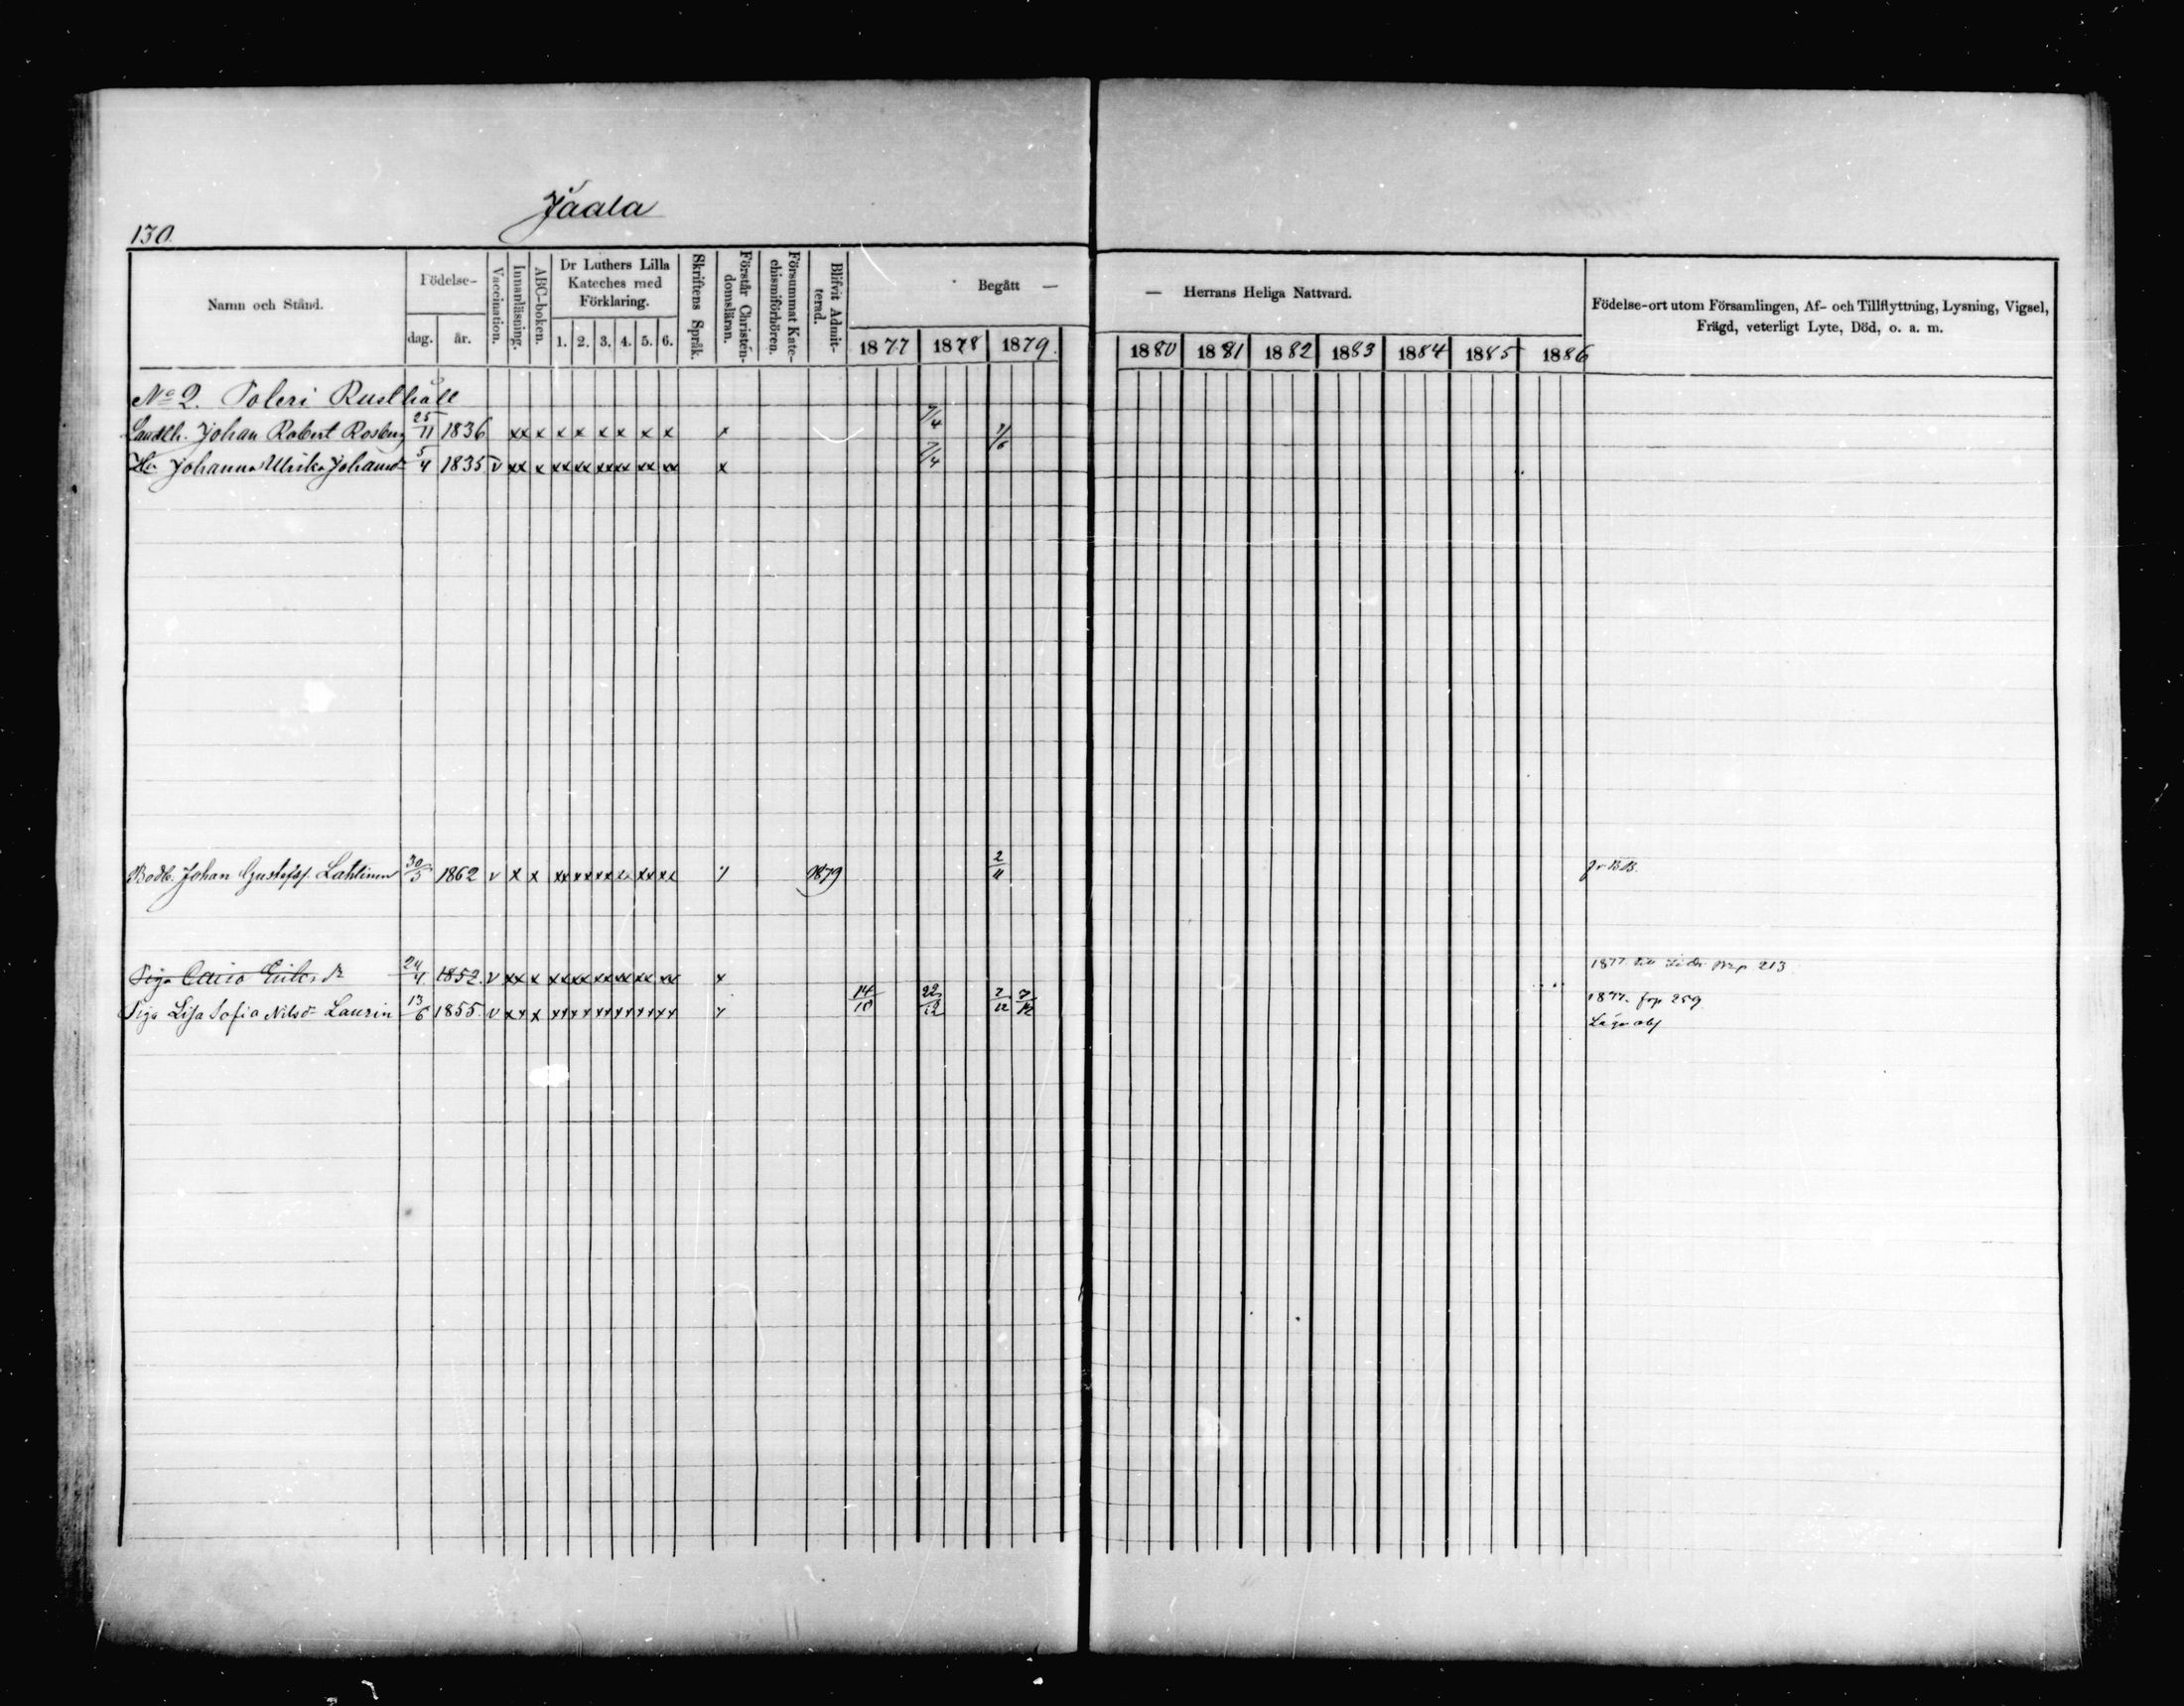 Jaala
130.
Namn och Stånd.
Födelse-
dag. år.
Vaccination.
Innanläsning.
ABC-boken.
Dr Luthers Lilla Kateches med Förklaring.
1. 2. 3. 4. 5. 6.
Skriftens Språk.
Förstår Christendomsläran.
Försummat Katechismiförhören.
Blifvit Admitterad.
Begått —
1877 1878 1879.
— Herrans Heliga Nattvard.
1880 1881 1882 1883 1884 1885 1886
Födelse-ort utom Församlingen, Af- och Tillflyttning, Lysning, Vigsel,
Frägd, veterligt Lyte, Död, o. a. m.
No 2. Toleri Rusthåll
Landth. Johan Robert Rosberg 25/11 1836 xx x x x x x x x x 7/4 1/6
Hu Johanna Ulrika Johansdr 5/4 1835 v xx x xx xx xx xx xx xx x 7/4
Bodb. Johan Gustafsf. Lahtinen 30/5 1862 v x x xx xx xx xx xx 1879 2/11 fr BB.
Piga 24/4 1852. v xx x xx xx xx xx xx xx x 1877 till 213
Piga Lisa Sofia Nilsdr Laurin 13/6 1855. v xx x xx xx xx xx xx xx 14/10 22/12 7/12 7/12 1877. frp 259